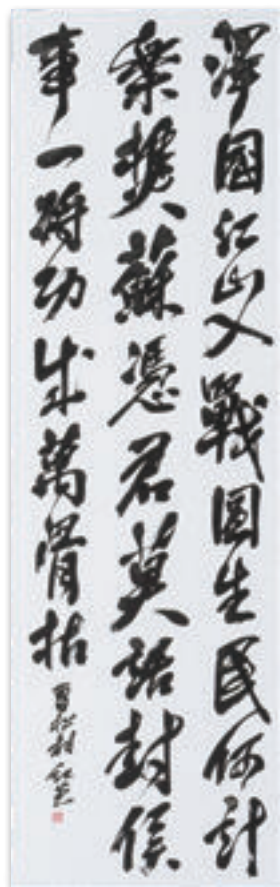 澤國江山入戰圖生民何計
樂樵蘇憑君莫話封侯
事一將功成萬骨枯